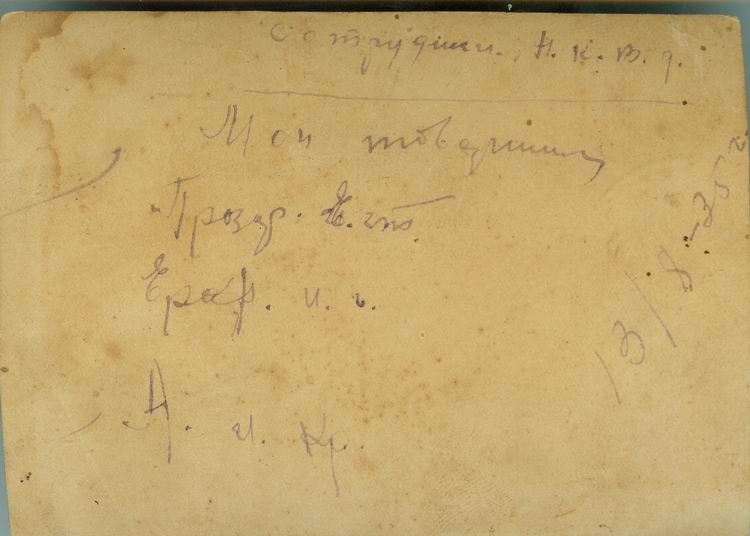 сотрудники. Н. К. В. Д.
Мои товарищи
Прозор. Е.
Ераф. и. г.
А. И. Кр.
13/X-35 г